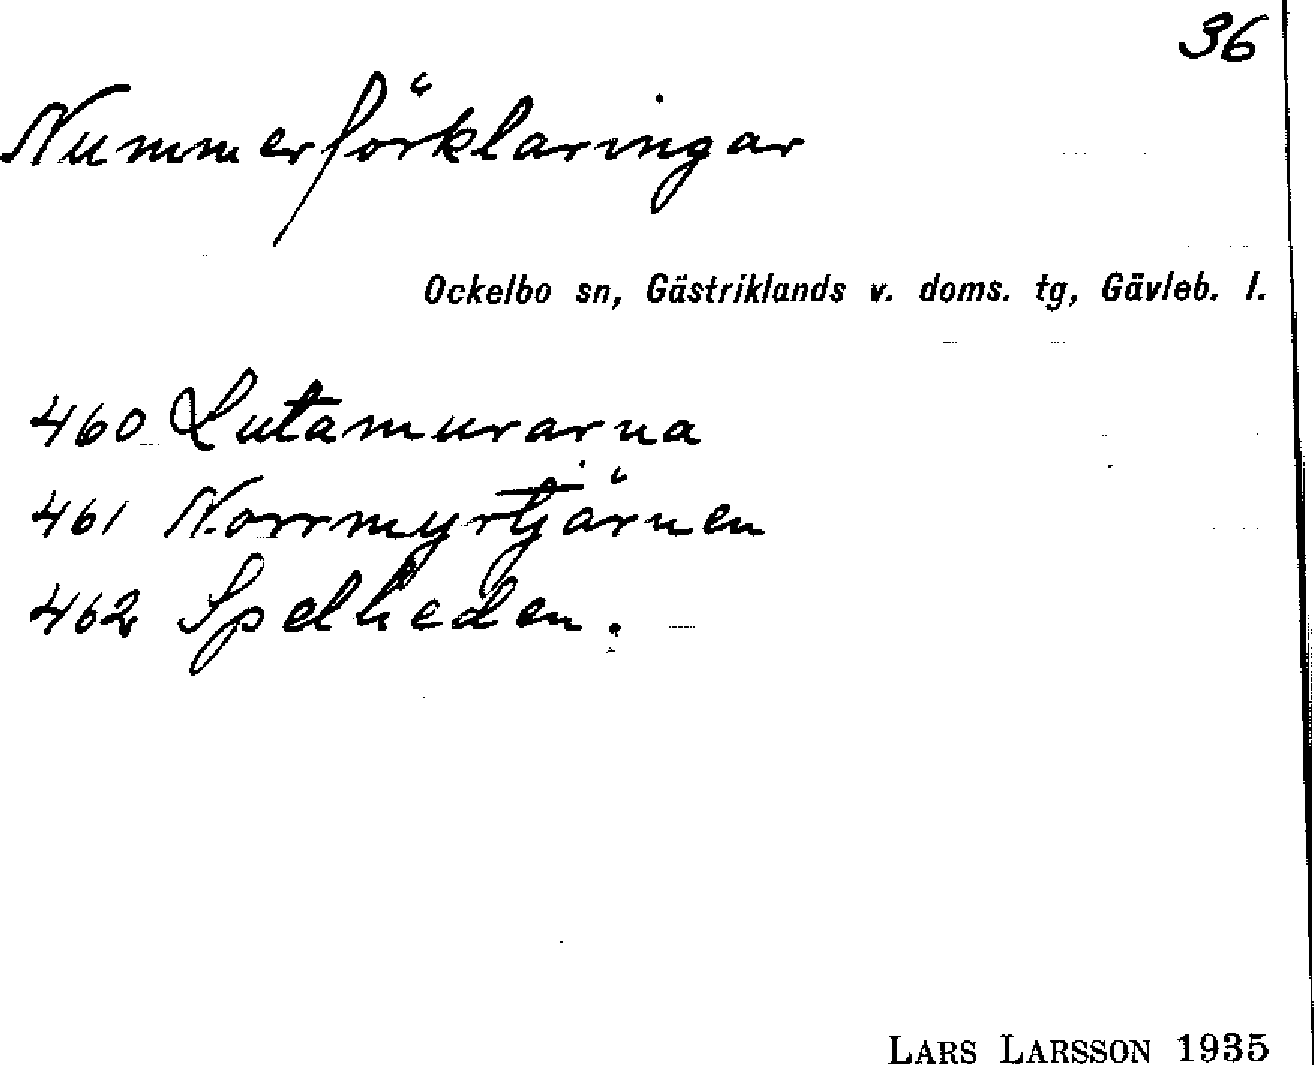 36
Nummerförklaringar
Ockelbo sn, Gästriklands v. doms. tg, Gävleb. l.
460 Lutamurarna
461 Norrmyrtjärnen
462 Spelheden.
LARS LARSSON 1935